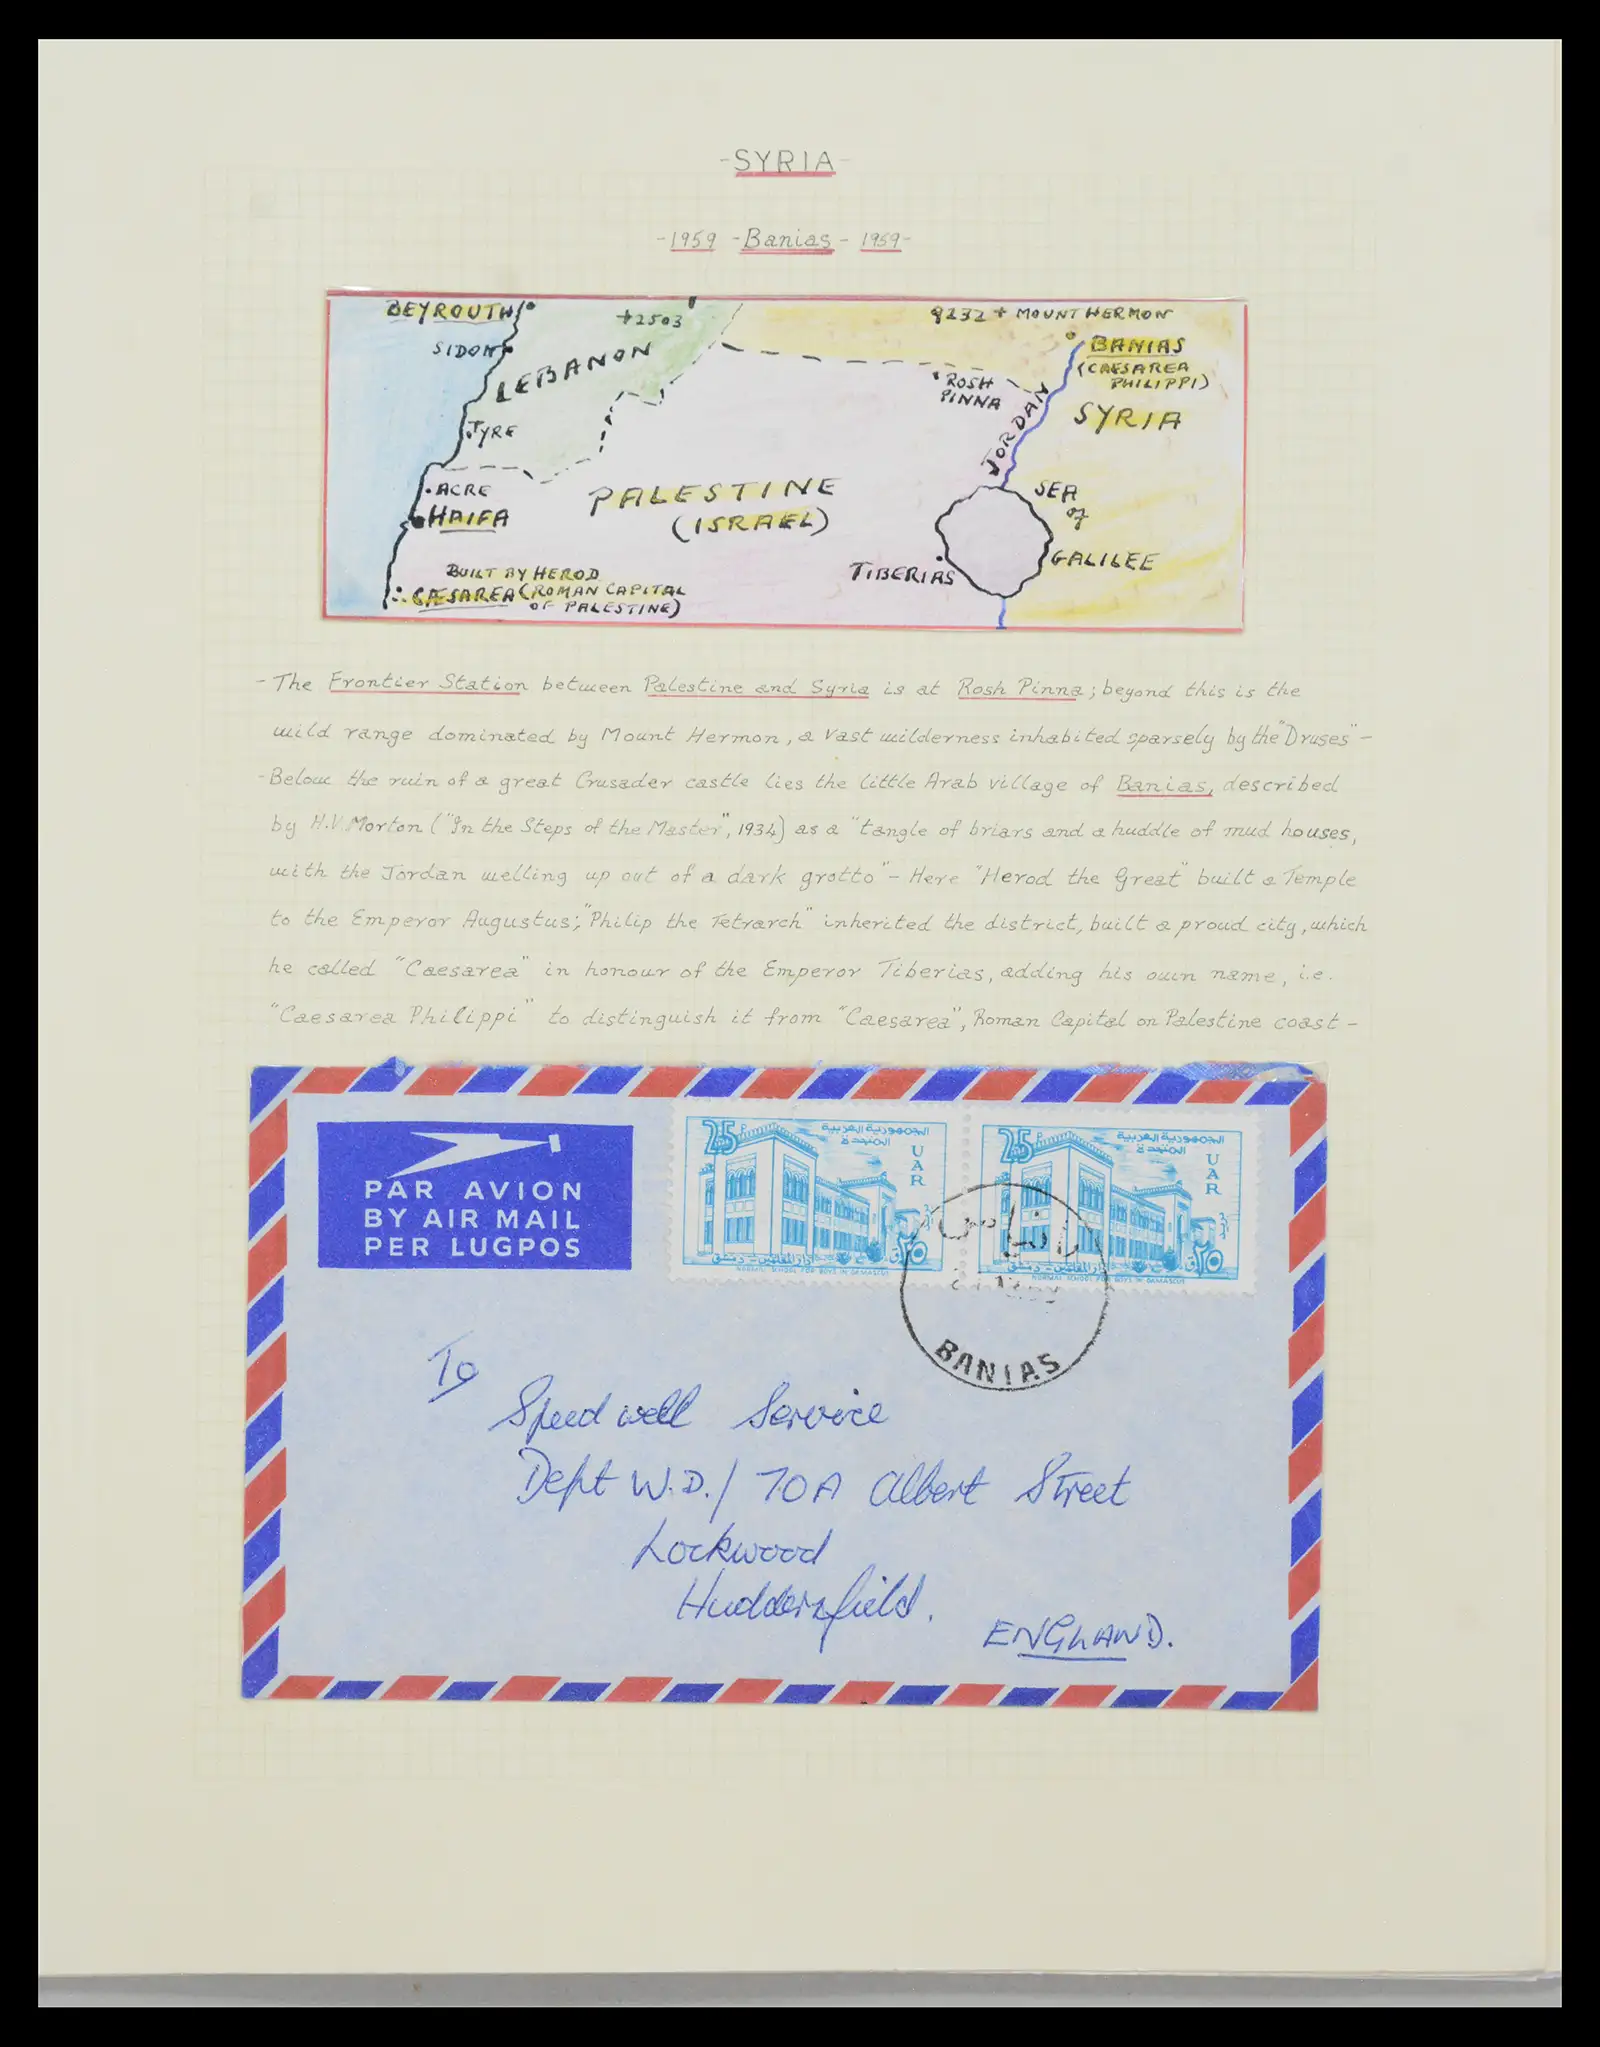 -SYRIA-
-1959 -Banias- 1959-
BEYROUTH
+2503
9232 + MOUNT HERMON
SIDON
LEBANON
BANIAS
(CAESAREA
PHILIPPI)
ROSH
PINNA
JORDAN
SYRIA
TYRE
ACRE
HAIFA
PALESTINE
(ISRAEL)
SEA
of
GALILEE
TIBERIAS
BUILT BY HEROD
CAESAREA (ROMAN CAPITAL
OF PALESTINE)
- The Frontier Station between Palestine and Syria is at Rosh Pinna; beyond this is the
wild range dominated by Mount Hermon, a vast wilderness inhabited sparsely by the "Druses" -
- Below the ruin of a great Crusader castle lies the little Arab village of Banias, described
by H.V. Morton ("In the Steps of the Master", 1934) as a "tangle of briars and a huddle of mud houses,
with the Jordan welling up out of a dark grotto" - Here "Herod the Great" built a Temple
to the Emperor Augustus; "Philip the Tetrarch" inherited the district, built a proud city, which
he called "Caesarea" in honour of the Emperor Tiberias, adding his own name, i.e.
"Caesarea Philippi" to distinguish it from "Caesarea", Roman Capital on Palestine coast -
PAR AVION
BY AIR MAIL
PER LUGPOS
25 P
الجمهورية العربية
المتحدة
UAR
٢٥
دار المعلمين - دمشق
NORMAL SCHOOL FOR BOYS IN DAMASCUS
25 P
الجمهورية العربية
المتحدة
UAR
٢٥
دار المعلمين - دمشق
NORMAL SCHOOL FOR BOYS IN DAMASCUS
بانياس
BANIAS
To
Speedwell Service
Dept W.D./ 70A Albert Street
Lockwood
Huddersfield.
ENGLAND.